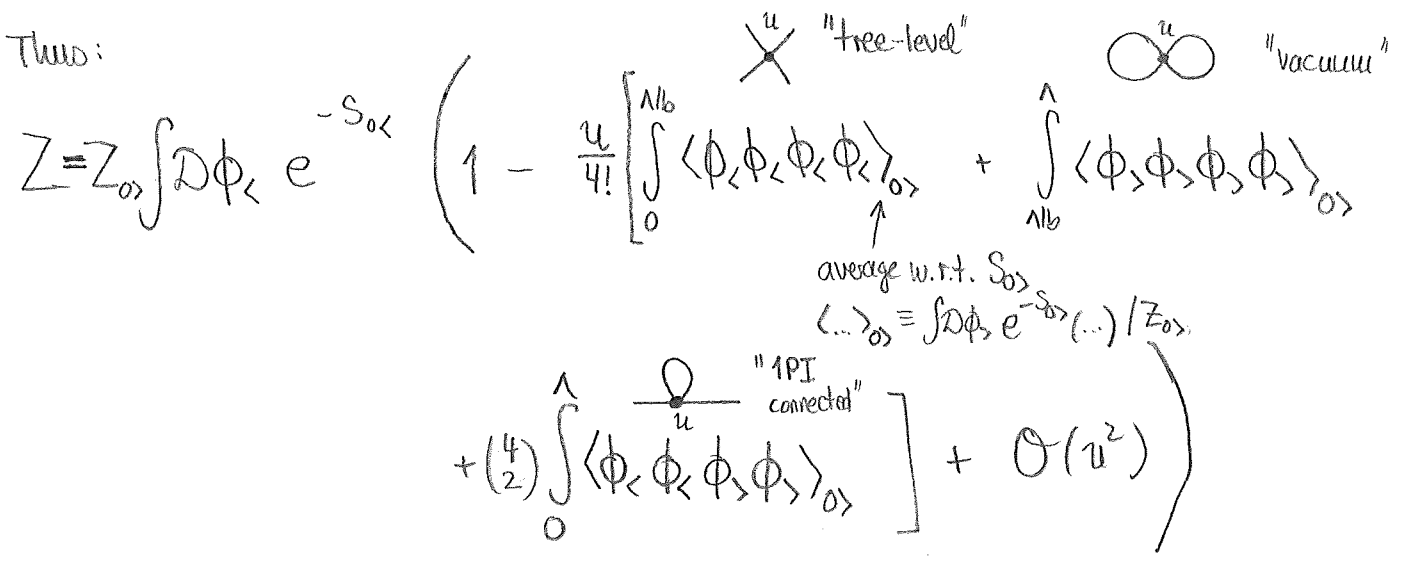 u "tree-level" u "vacuum"
Thus:
Z = Z₀> ∫ Dϕ< e^{-S₀<} ( 1 - u/4! [ ∫_0^{Λ/b} ⟨ϕ< ϕ< ϕ< ϕ<⟩₀> + ∫_{Λ/b}^{Λ} ⟨ϕ> ϕ> ϕ> ϕ>⟩₀>
average w.r.t. S₀>
⟨...⟩₀> ≡ ∫Dϕ> e^{-S₀>} (...) / Z₀>
u "1PI
connected"
+ (4 2) ∫_0^Λ ⟨ϕ< ϕ< ϕ> ϕ>⟩₀> ] + O(u²) )